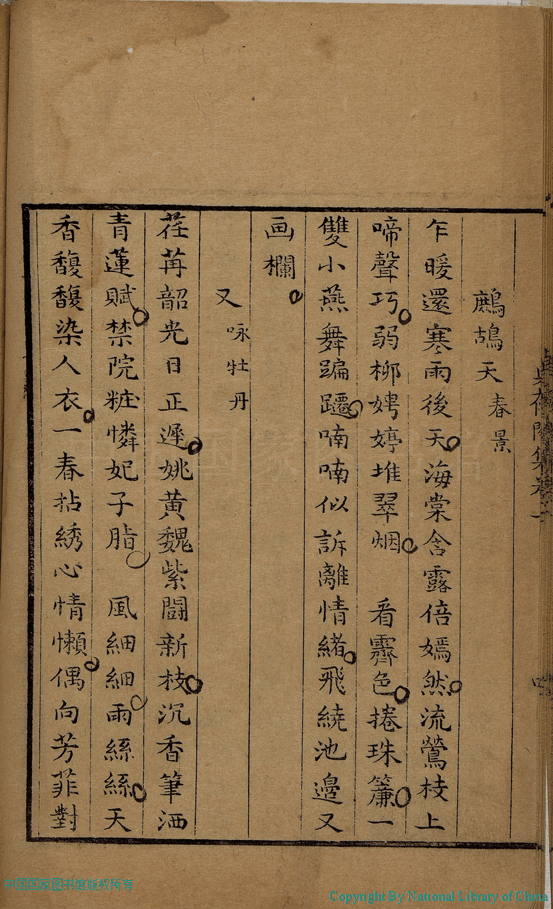 鷓鴣天 春景
乍暖還寒雨後天海棠含露倍嫣然流鶯枝上
啼聲巧弱柳娉婷堆翠烟 看霽色捲珠簾一
雙小燕舞蹁躚喃喃似訴離情緒飛繞池邊又
画欄
又 咏牡丹
荏苒韶光日正遲姚黃魏紫鬪新枝沉香筆洒
青蓮賦禁院粧憐妃子脂 風細細雨絲絲天
香馥馥染人衣一春拈綉心情懶偶向芳菲對
Copyright By National Library of China